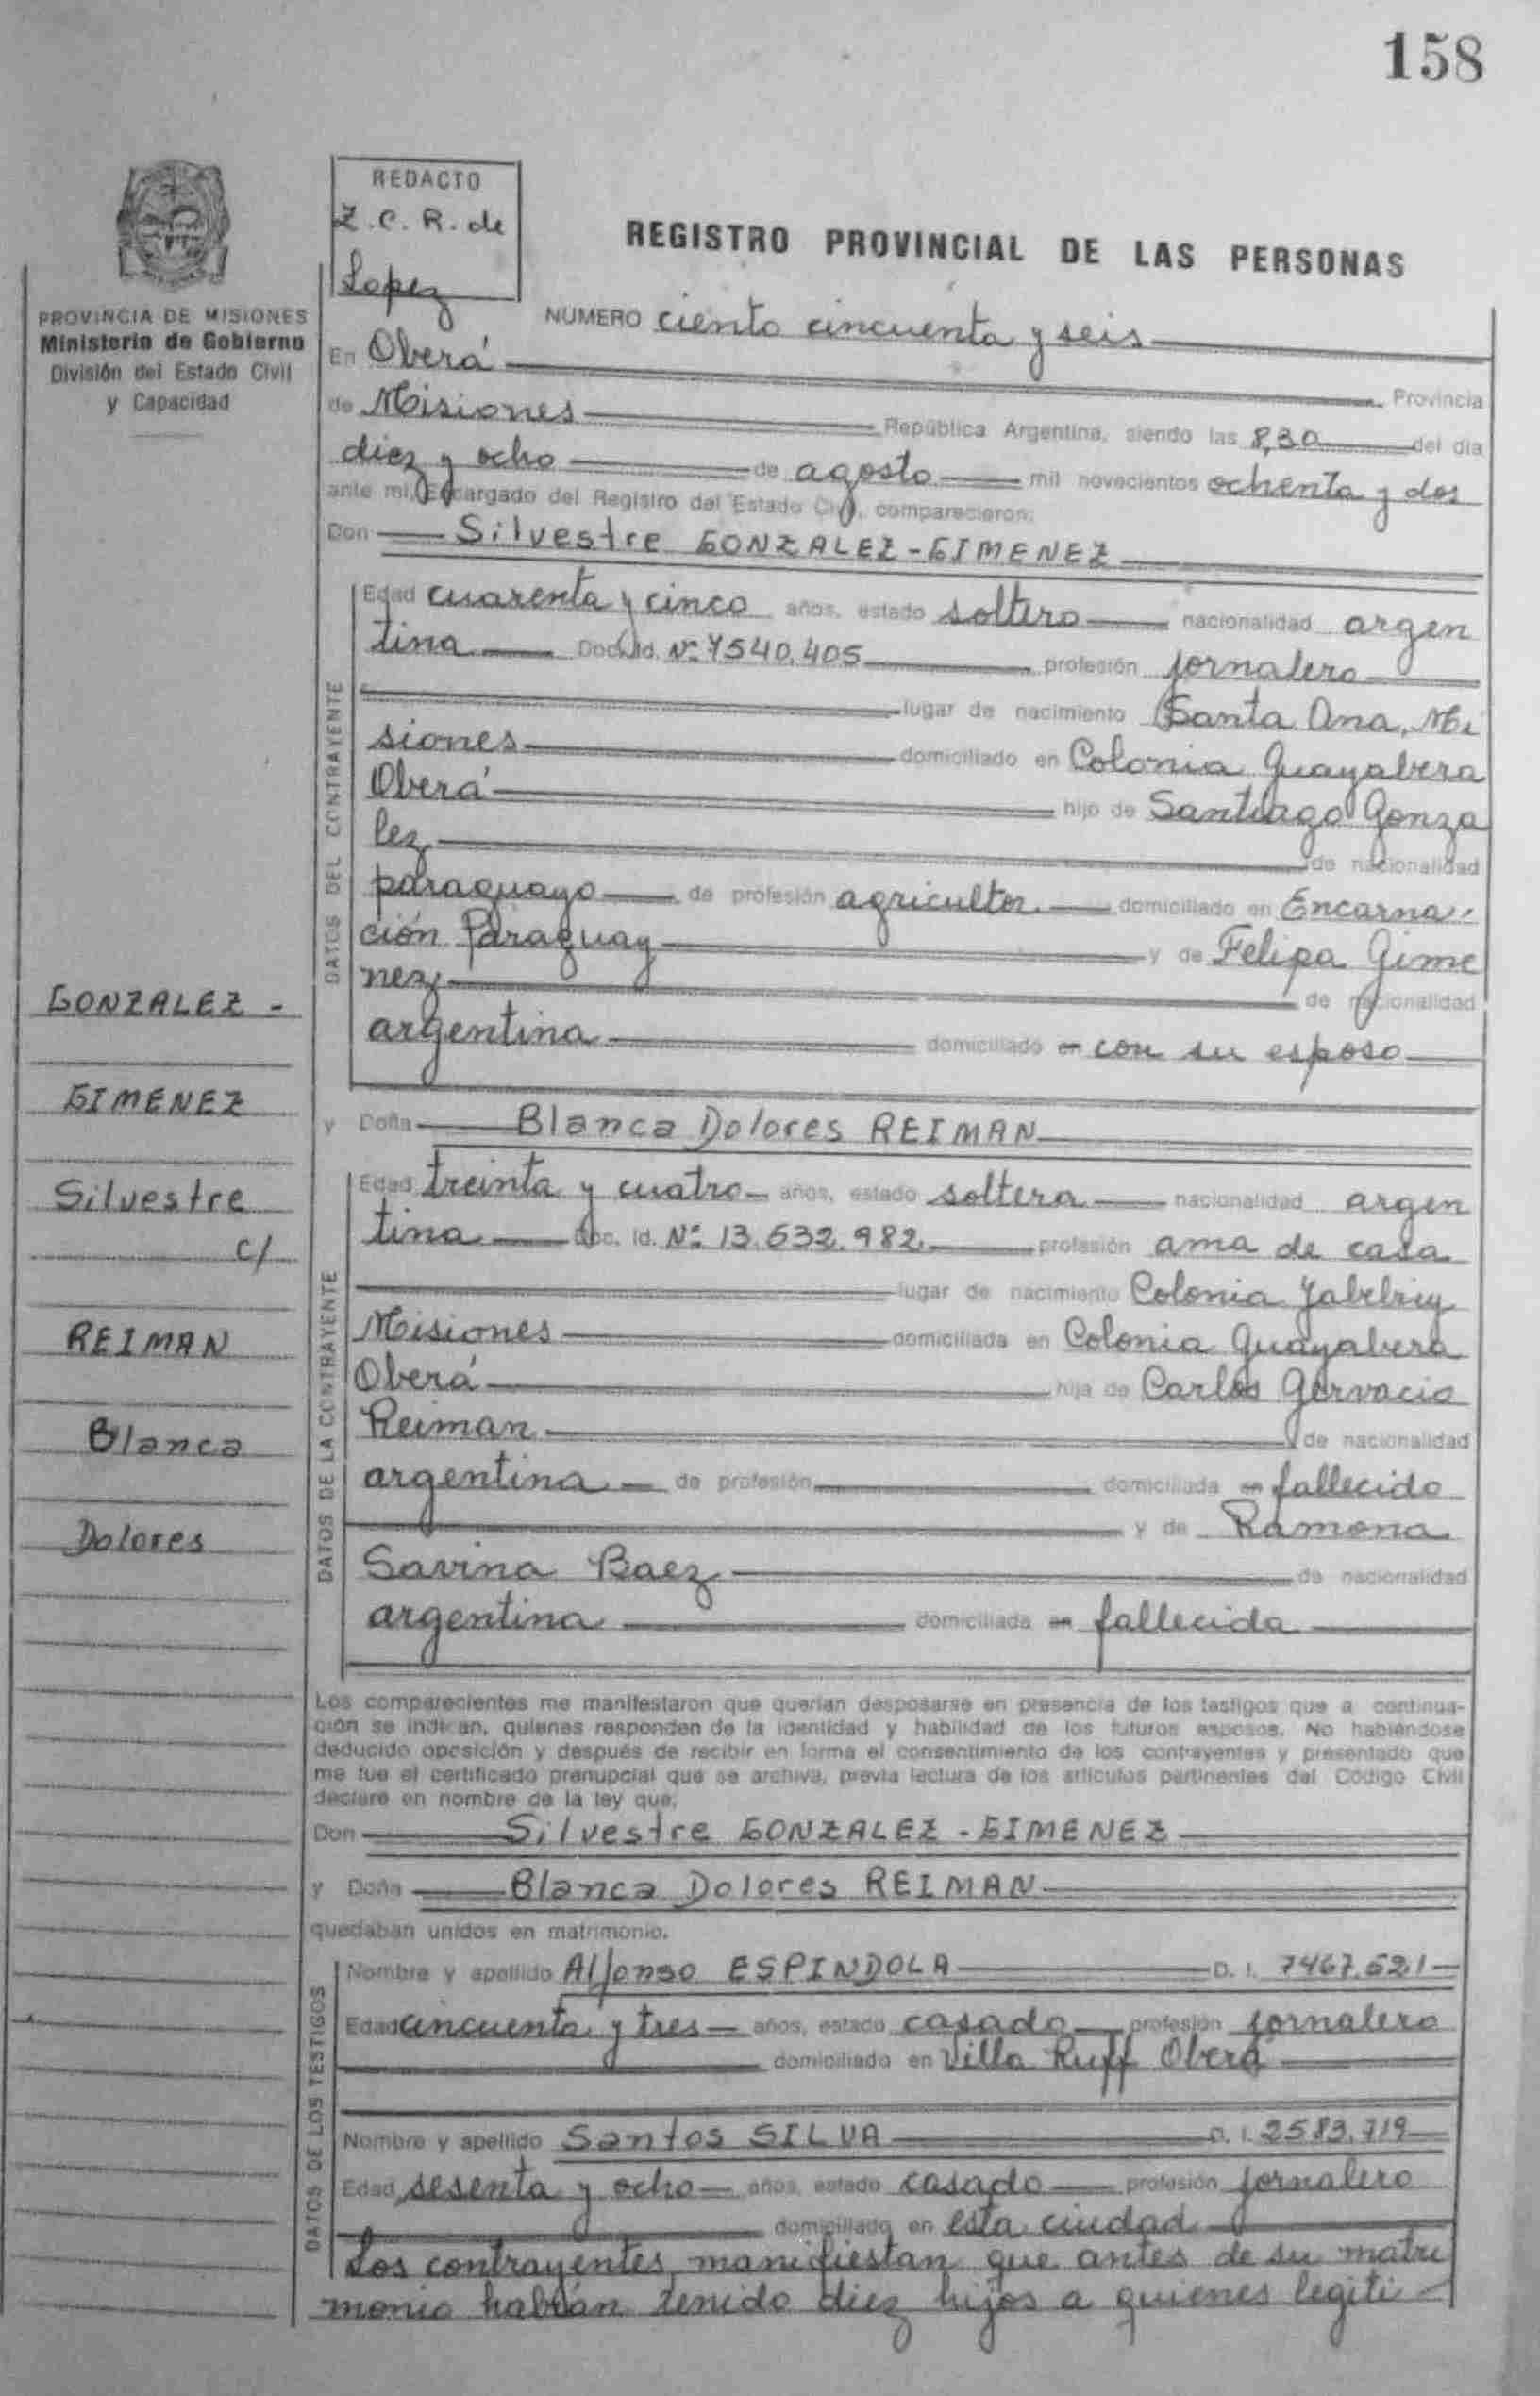 158
REDACTO
Z. C. R. de
Lopez
REGISTRO PROVINCIAL DE LAS PERSONAS
PROVINCIA DE MISIONES
Ministerio de Gobierno
División del Estado Civil
y Capacidad
NUMERO ciento cincuenta y seis
En Oberá Provincia
de Misiones República Argentina, siendo las 8,30 del día
diez y ocho de agosto mil novecientos ochenta y dos
ante mí, Encargado del Registro del Estado Civil, comparecieron:
Don Silvestre GONZALEZ-GIMENEZ
DATOS DEL CONTRAYENTE
Edad cuarenta y cinco años, estado soltero nacionalidad argen
tina Doc. Id. Nº 7540.405 profesión jornalero
lugar de nacimiento Santa Ana, Mi
siones domiciliado en Colonia Guayabera
Oberá hijo de Santiago Gonza
lez de nacionalidad
paraguayo de profesión agricultor domiciliado en Encarna
ción Paraguay y de Felipa Gime
nez de nacionalidad
argentina domiciliado en con su esposo
y Doña Blanca Dolores REIMAN
DATOS DE LA CONTRAYENTE
Edad treinta y cuatro años, estado soltera nacionalidad argen
tina Doc. Id. Nº 13.632.982 profesión ama de casa
lugar de nacimiento Colonia
Misiones domiciliada en Colonia Guayabera
Oberá hija de Carlos Gervacio
Reiman de nacionalidad
argentina de profesión domiciliada en fallecido
y de Ramona
Savina Baez de nacionalidad
argentina domiciliada en fallecida
GONZALEZ -
GIMENEZ
Silvestre
c/
REIMAN
Blanca
Dolores
Los comparecientes me manifestaron que querían desposarse en presencia de los testigos que a continua-
ción se indican, quienes responden de la identidad y habilidad de los futuros esposos. No habiéndose
deducido oposición y después de recibir en forma el consentimiento de los contrayentes y presentado que
me fue el certificado prenupcial que se archiva, previa lectura de los artículos pertinentes del Código Civil
declaro en nombre de la ley que:
Don Silvestre GONZALEZ - GIMENEZ
y Doña Blanca Dolores REIMAN
quedaban unidos en matrimonio.
DATOS DE LOS TESTIGOS
Nombre y apellido Alfonso ESPINDOLA D. I. 7467.521
Edad cincuenta y tres años, estado casado profesión jornalero
domiciliado en Villa Ruff Oberá
Nombre y apellido Santos SILVA D. I. 2583.719
Edad sesenta y ocho años, estado casado profesión jornalero
domiciliado en esta ciudad
Los contrayentes manifiestan que antes de su matri
monio habían tenido diez hijos a quienes legiti